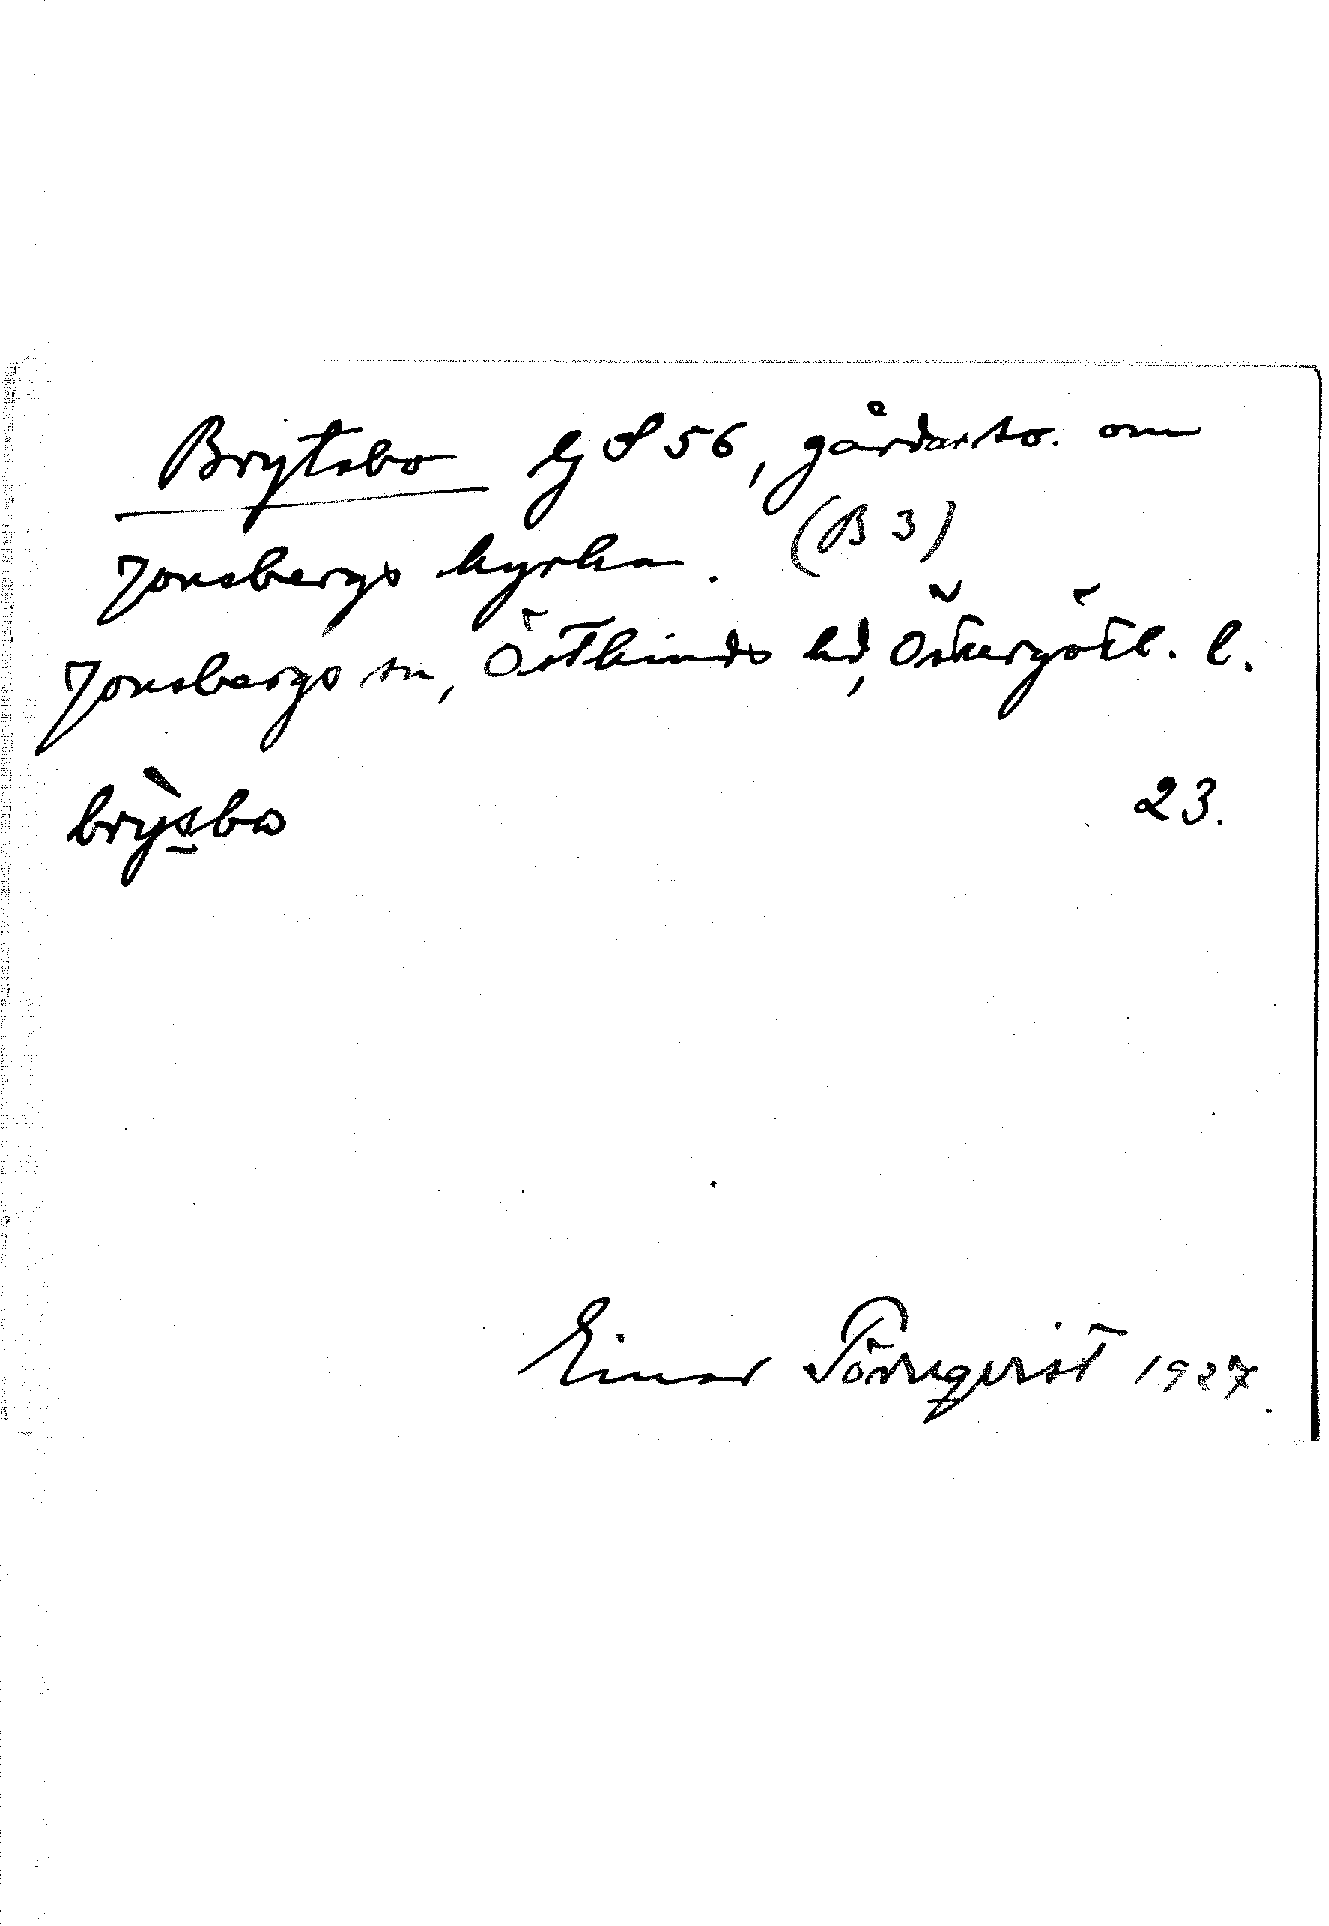 Brytsbo Lj 856, gårdar so. om
Jonsbergs kyrka. (B 3)
Jonsbergs sn, Östkinds hd, Östergötl. l.
brỳsbo 23.
Einar Törnqvist 1927.